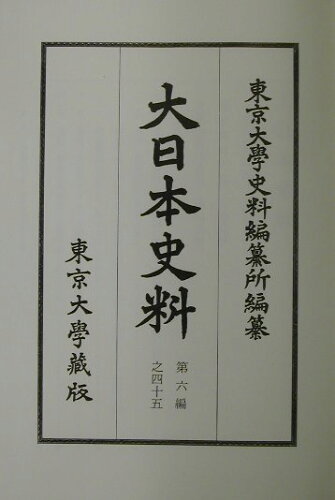 東京大學史料編纂所編纂
大日本史料
第六編
之四十五
東京大學藏版